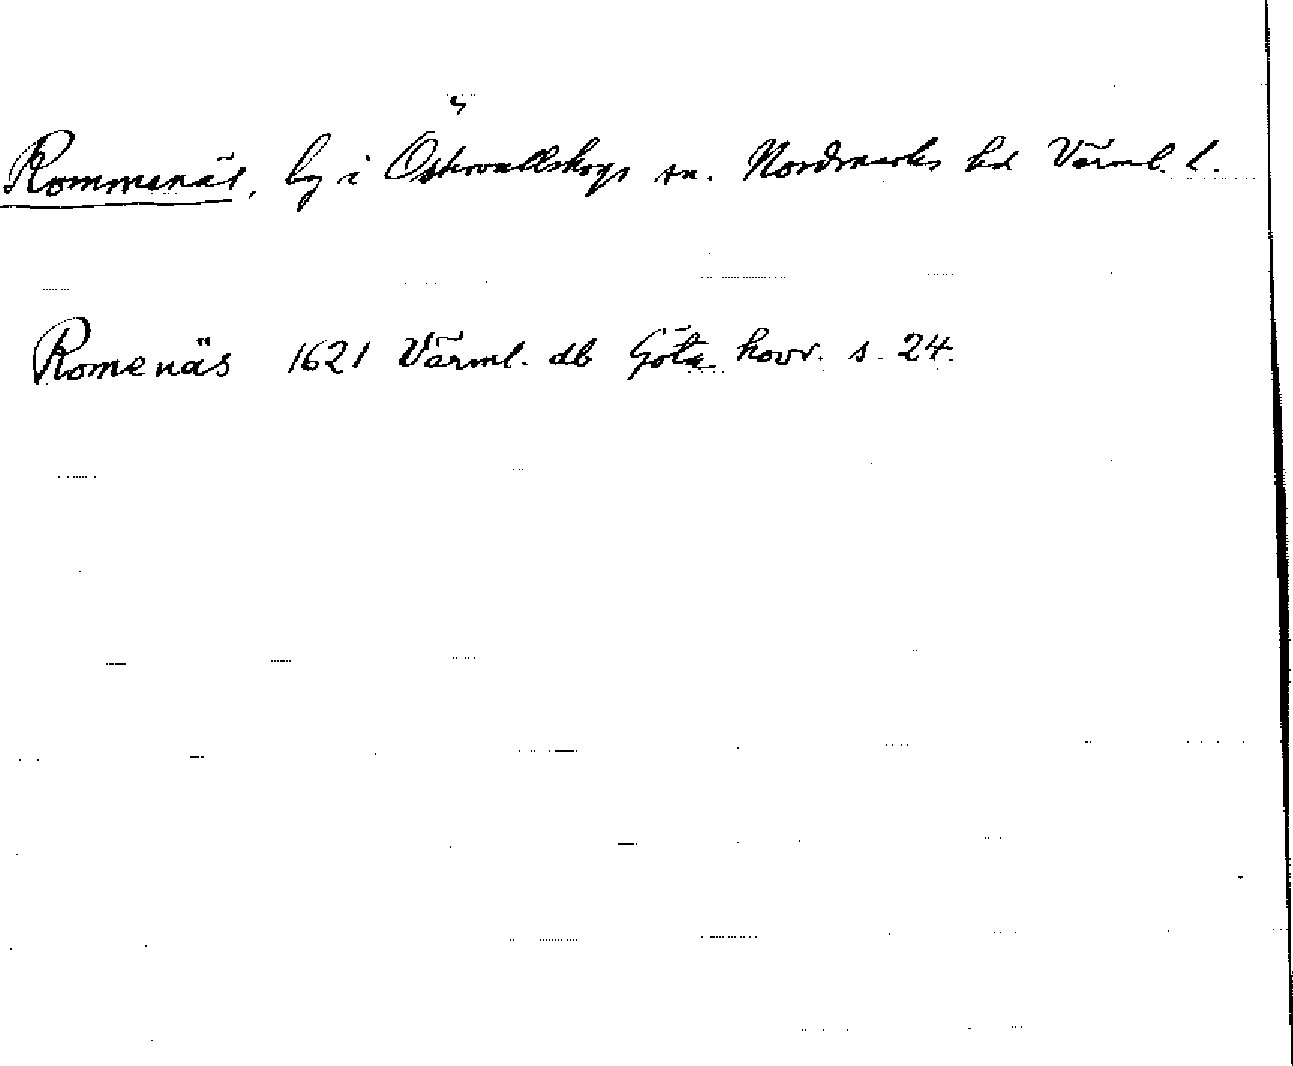 Rommenäs, by i Östervallskogs sn. Nordmarks hd Värml. l.
Romenäs 1621 Värml. db Göta hovr. s. 24.